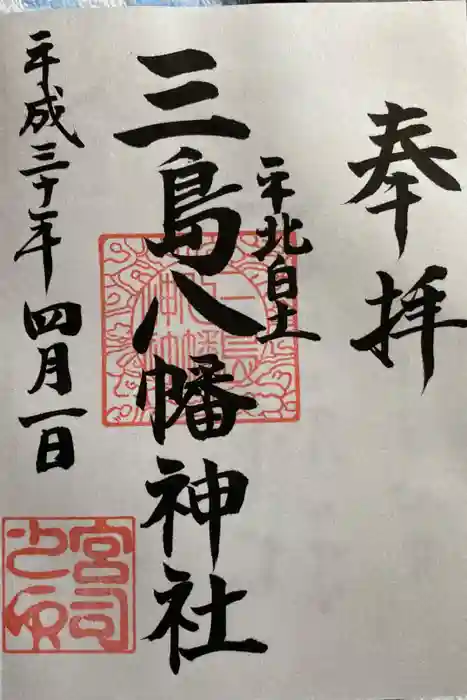 奉拝
平北白土
三島八幡神社
平成三十年四月一日
宮司之印